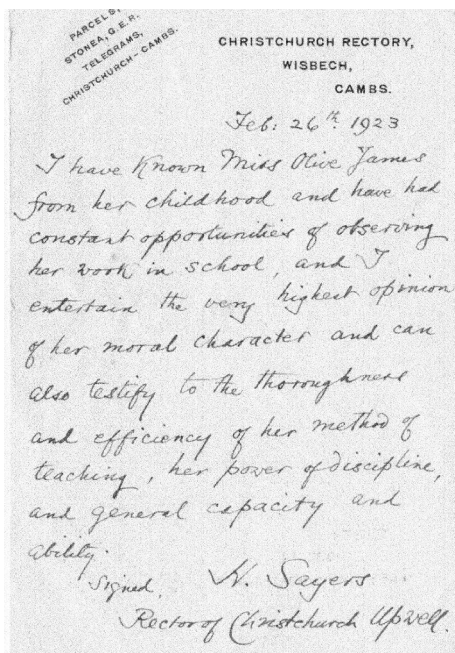 PARCELS,
STONEA, G.E.R.
TELEGRAMS,
CHRISTCHURCH-CAMBS.
CHRISTCHURCH RECTORY,
WISBECH,
CAMBS.
Feb: 26th. 1923
I have known Miss Olive James
from her childhood and have had
constant opportunities of observing
her work in school, and I
entertain the very highest opinion
of her moral character and can
also testify to the thoroughness
and efficiency of her method of
teaching, her power of discipline,
and general capacity and
ability.
Signed. H. Sayers
Rector of Christchurch Upwell.